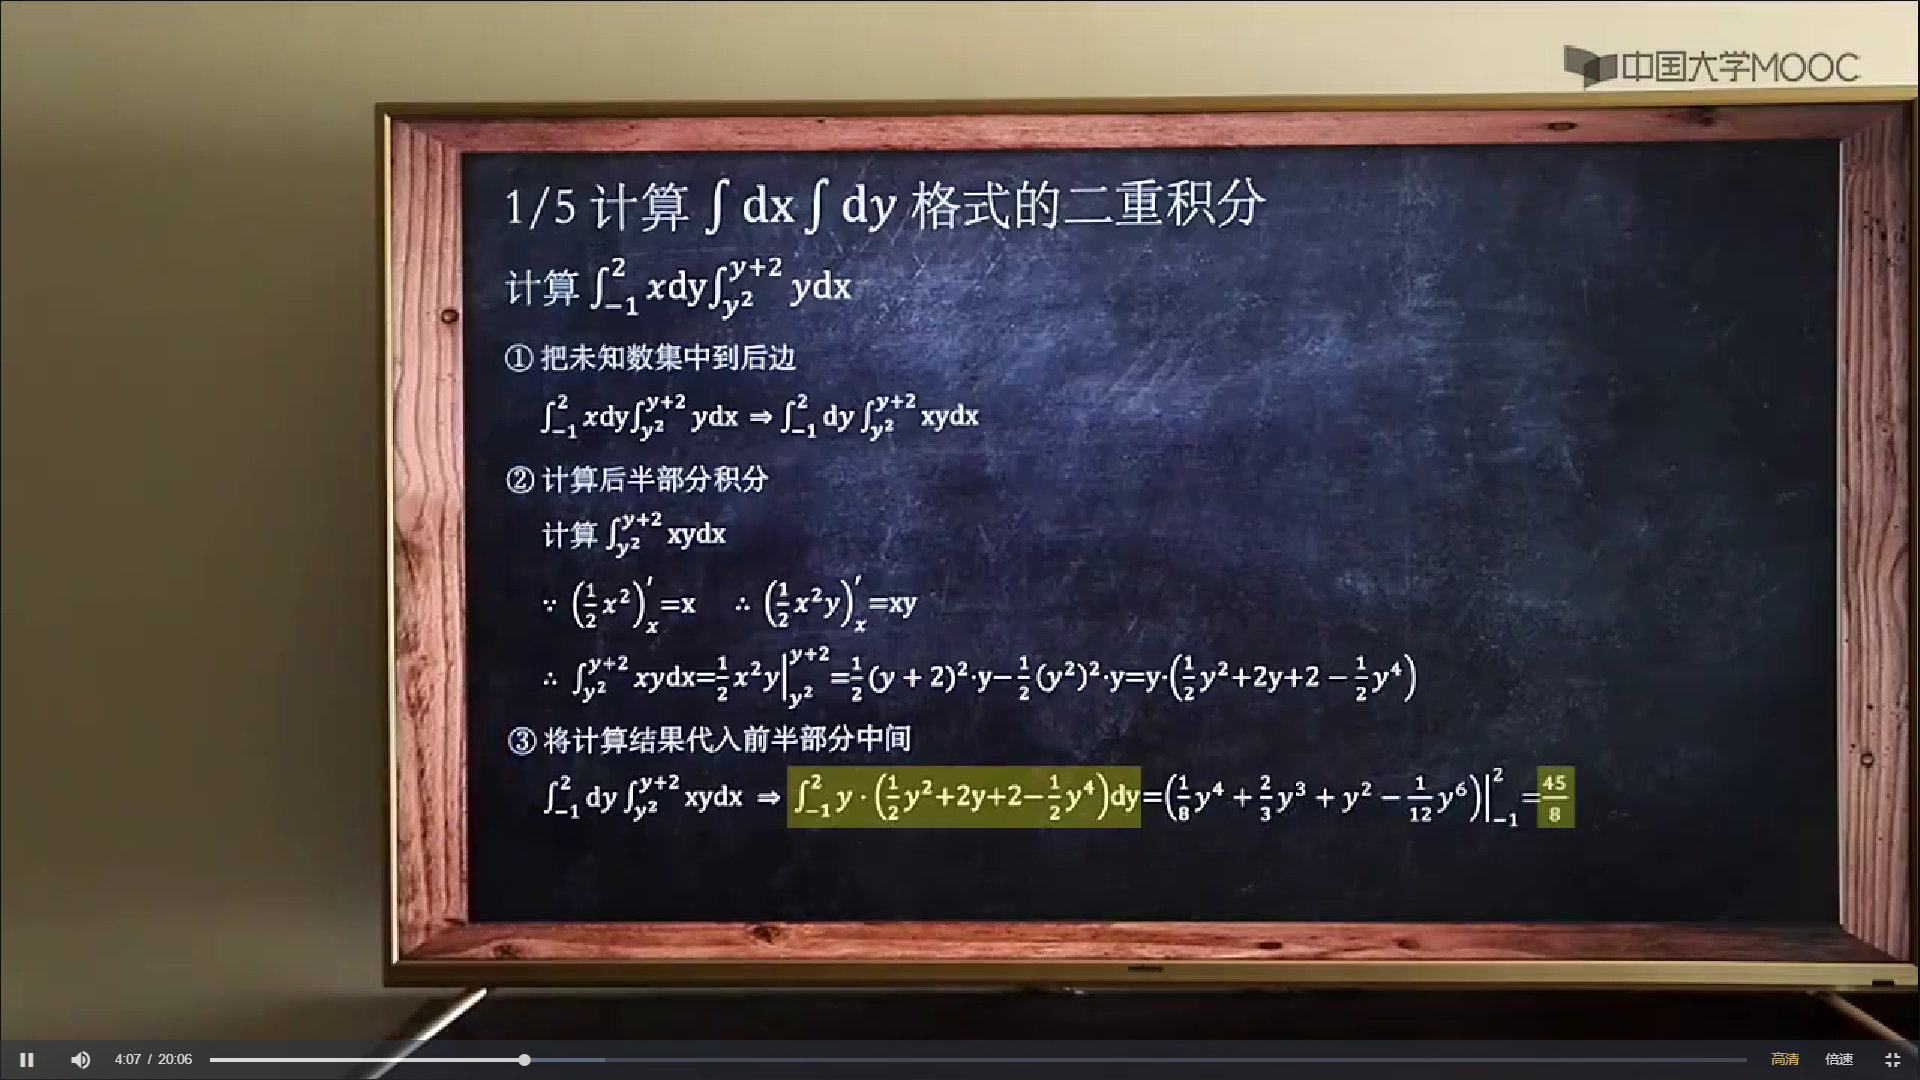 中国大学MOOC
1/5 计算 ∫ dx ∫ dy 格式的二重积分
计算 ∫₋₁² xdy∫_{y²}^{y+2} ydx
① 把未知数集中到后边
∫₋₁² xdy∫_{y²}^{y+2} ydx ⇒ ∫₋₁² dy ∫_{y²}^{y+2} xydx
② 计算后半部分积分
计算 ∫_{y²}^{y+2} xydx
∵ (1/2 x²)′ₓ=x ∴ (1/2 x²y)′ₓ=xy
∴ ∫_{y²}^{y+2} xydx=1/2 x²y|_{y²}^{y+2}=1/2 (y + 2)²·y−1/2 (y²)²·y=y·(1/2 y²+2y+2 − 1/2 y⁴)
③ 将计算结果代入前半部分中间
∫₋₁² dy ∫_{y²}^{y+2} xydx ⇒ ∫₋₁² y · (1/2 y²+2y+2−1/2 y⁴)dy=(1/8 y⁴ + 2/3 y³ + y² − 1/12 y⁶)|₋₁² =45/8
4:07 / 20:06
高清
倍速